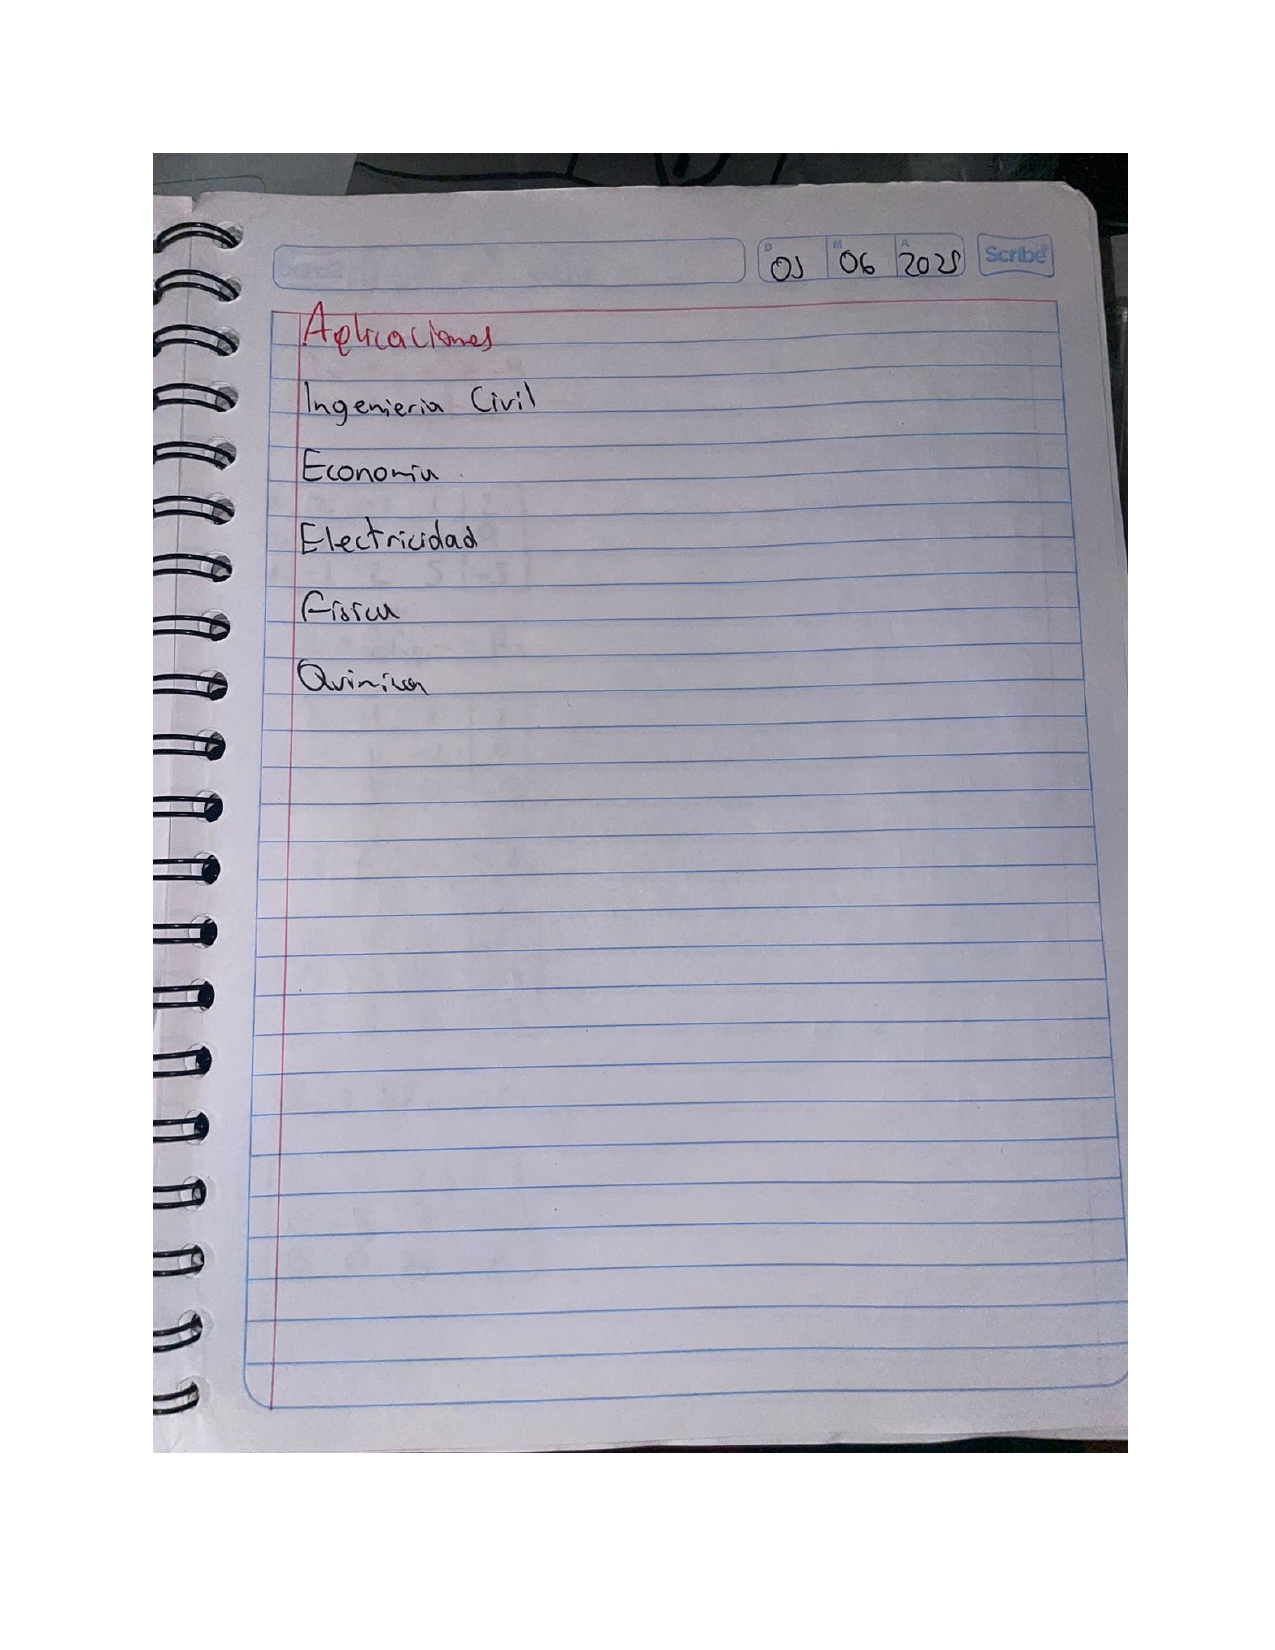 05 06 2025 Scribe
Aplicaciones
Ingenieria Civil
Economia
Electricidad
Fisica
Quimica